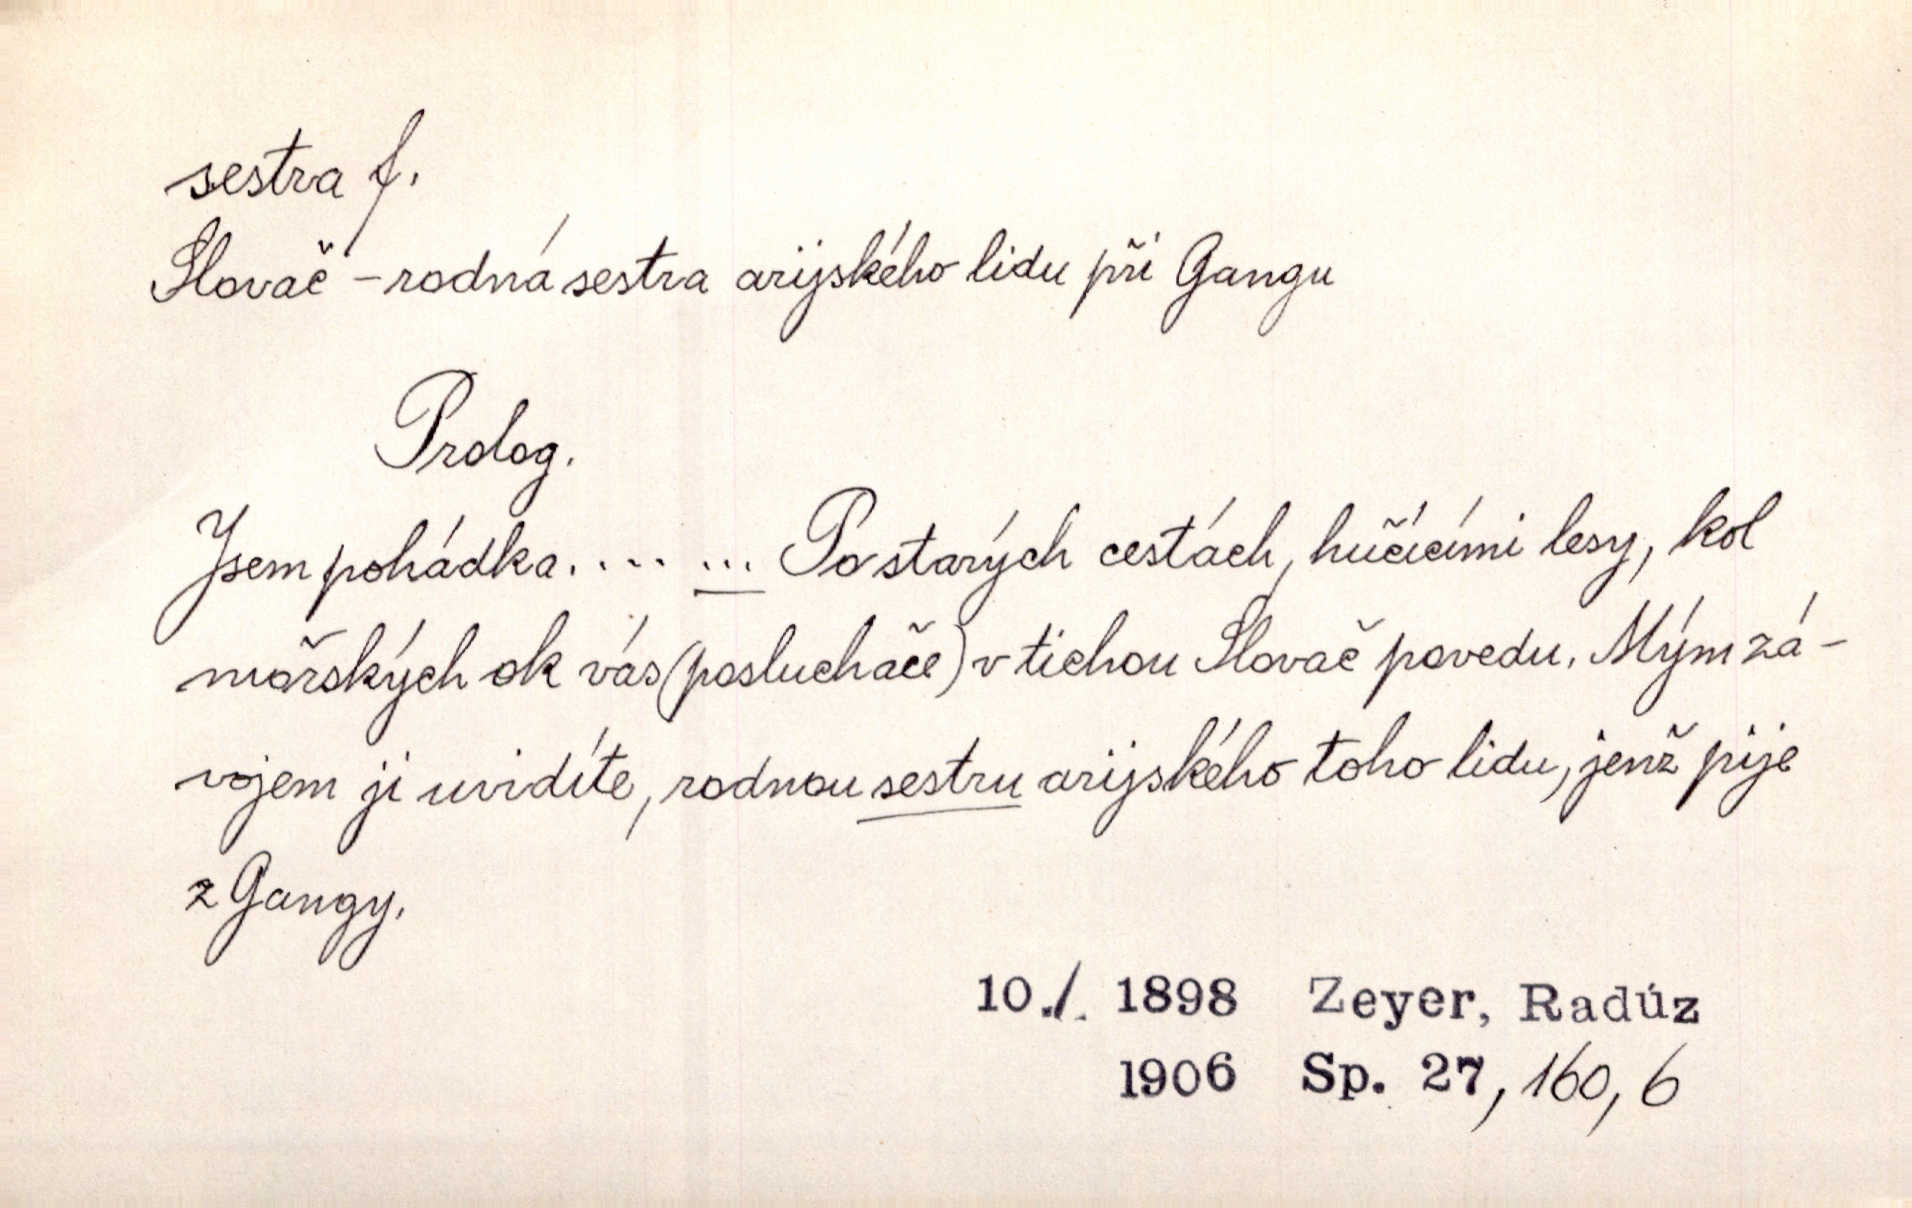 sestra f.
Slovač – rodná sestra arijského lidu při Gangu
Prolog.
Jsem pohádka. . . . . . . Po starých cestách, hučícími lesy, kol
mořských ok vás (posluchače) v tichou Slovač povedu. Mým zá-
vojem ji uvidíte, rodnou sestru arijského toho lidu, jenž pije
z Gangy.
10./. 1898 Zeyer, Radúz
1906 Sp. 27, 160, 6